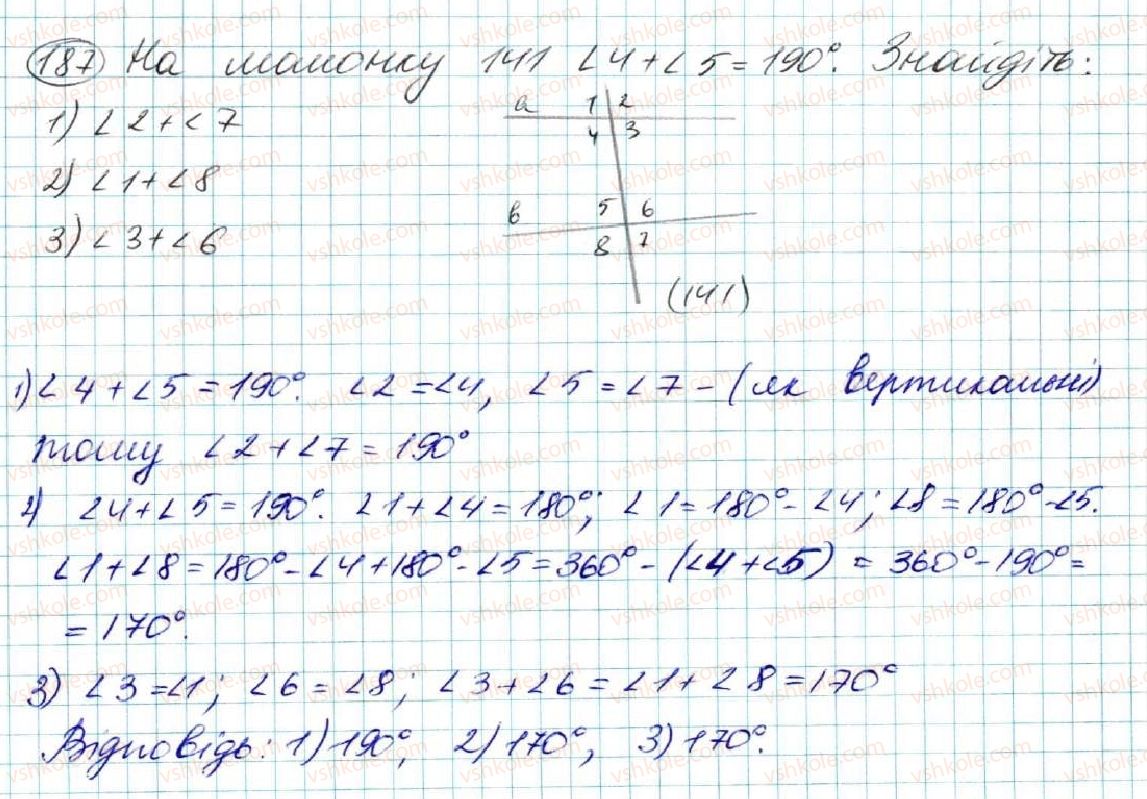 187 На малюнку 141 ∠4+∠5=190°. Знайдіть:
1) ∠2+∠7
2) ∠1+∠8
3) ∠3+∠6
a 1 2
4 3
в 5 6
8 7
(141)
1) ∠4+∠5=190°. ∠2=∠4, ∠5=∠7 – (як вертикальні)
тому ∠2+∠7=190°
2) ∠4+∠5=190°. ∠1+∠4=180°; ∠1=180°-∠4; ∠8=180°-∠5.
∠1+∠8=180°-∠4+180°-∠5=360°-(∠4+∠5) = 360°-190°=
=170°.
3) ∠3=∠1; ∠6=∠8; ∠3+∠6=∠1+∠8=170°
Відповідь: 1) 190°, 2) 170°, 3) 170°.